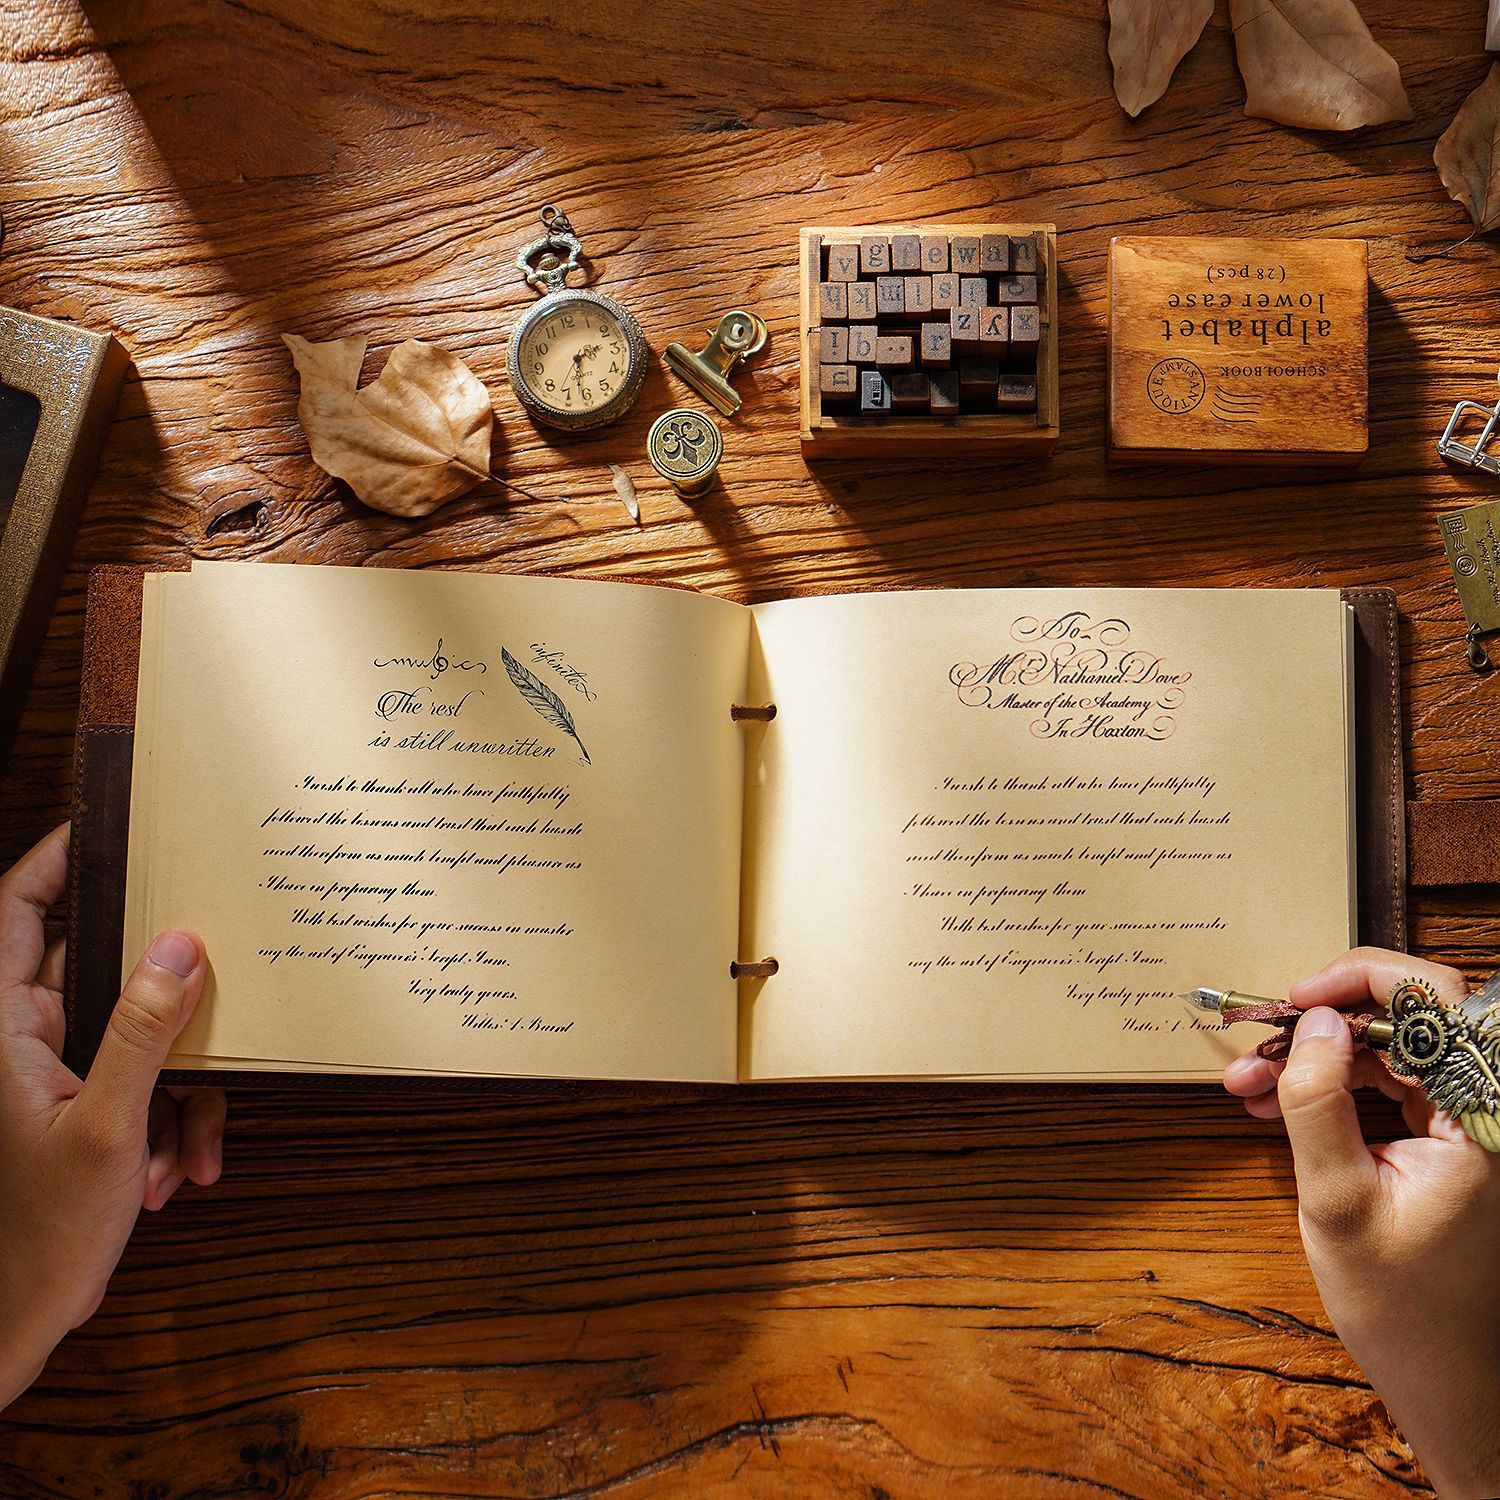 12
QUARTZ
v g f e w a n
z y x
! b .. r
alphabet
lower case
(28 pcs)
SCHOOLBOOK
ANTIQUE
STAMP
music
infinite
The rest
is still unwritten
I wish to thank all who have faithfully
followed the lessons and trust that each has de
rived therefrom as much benefit and pleasure as
I have in preparing them.
With best wishes for your success in master
ing the art of Engravers' Script I am.
Very truly yours.
To
Mr. Nathaniel Dove
Master of the Academy
In Hoxton
I wish to thank all who have faithfully
followed the lessons and trust that each has de
rived therefrom as much benefit and pleasure as
I have in preparing them
With best wishes for your success in master
ing the art of Engravers' Script I am.
Very truly yours